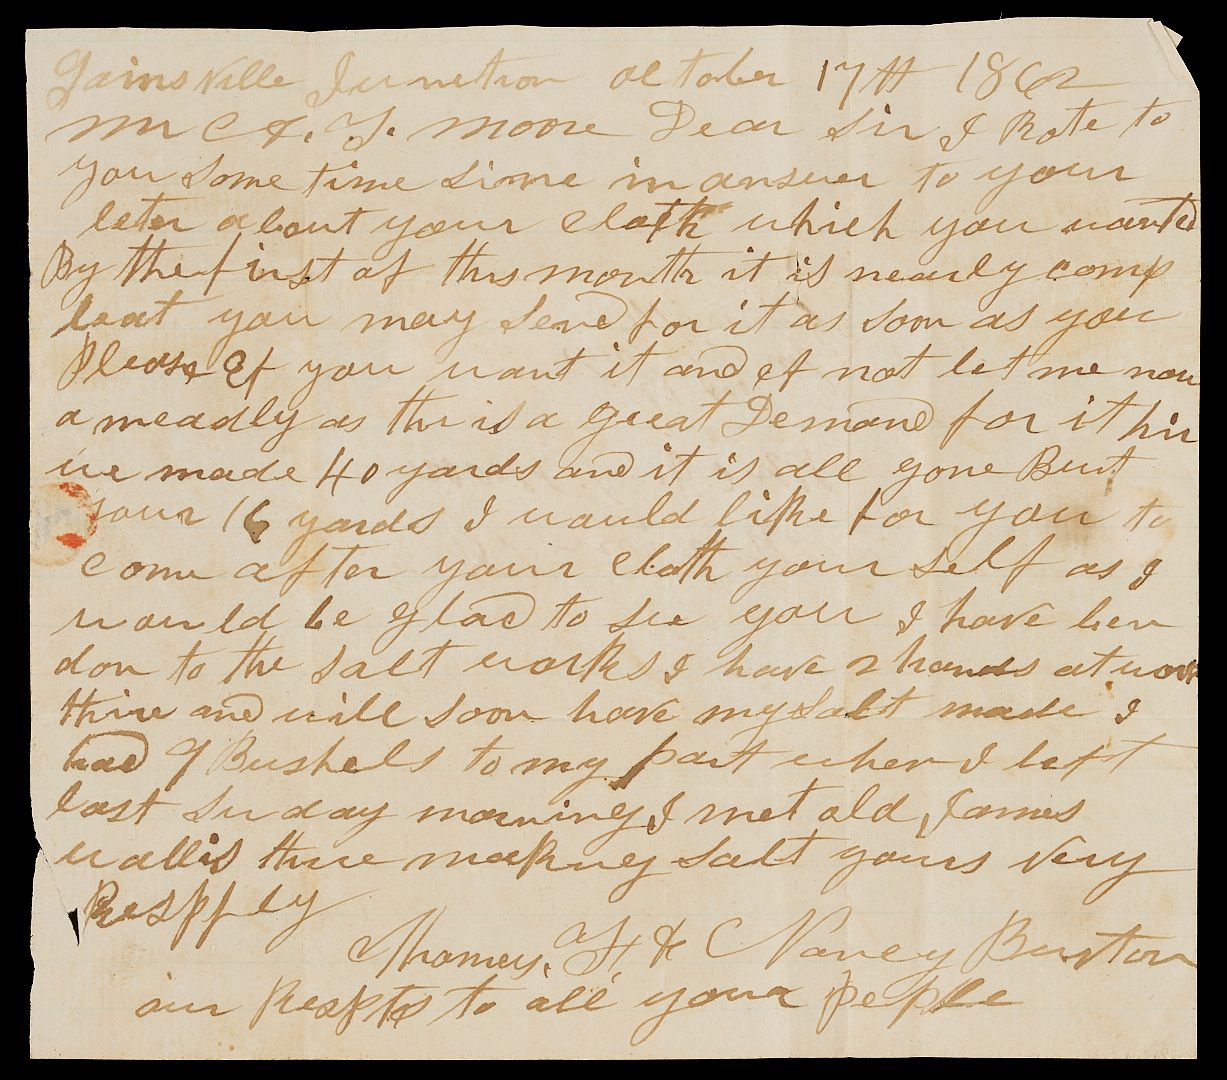 Gainsville Junction October 17th 1862
Mr C. F. Moore Dear Sir I Rote to
you some time since in answer to your
leter about your cloth which you wanted
By the first of this month it is nearly comp
leat you may send for it as soon as you
Please Ef you want it and Ef not let me now
a meadly as thir is a great Demand for it hir
we made 40 yards and it is all gone But
your 16 yards I would like for you to
come after your cloth your self as I
would be glad to see you I have ben
don to the salt works I have 2 hands at work
thire and will soon have my salt made I
had 9 Bushels to my part when I left
last Sunday morning I met old James
wallis thire making salt yours very
Resppfly
Thomas. F. & C Nancy Burton
our Respts to all your peple